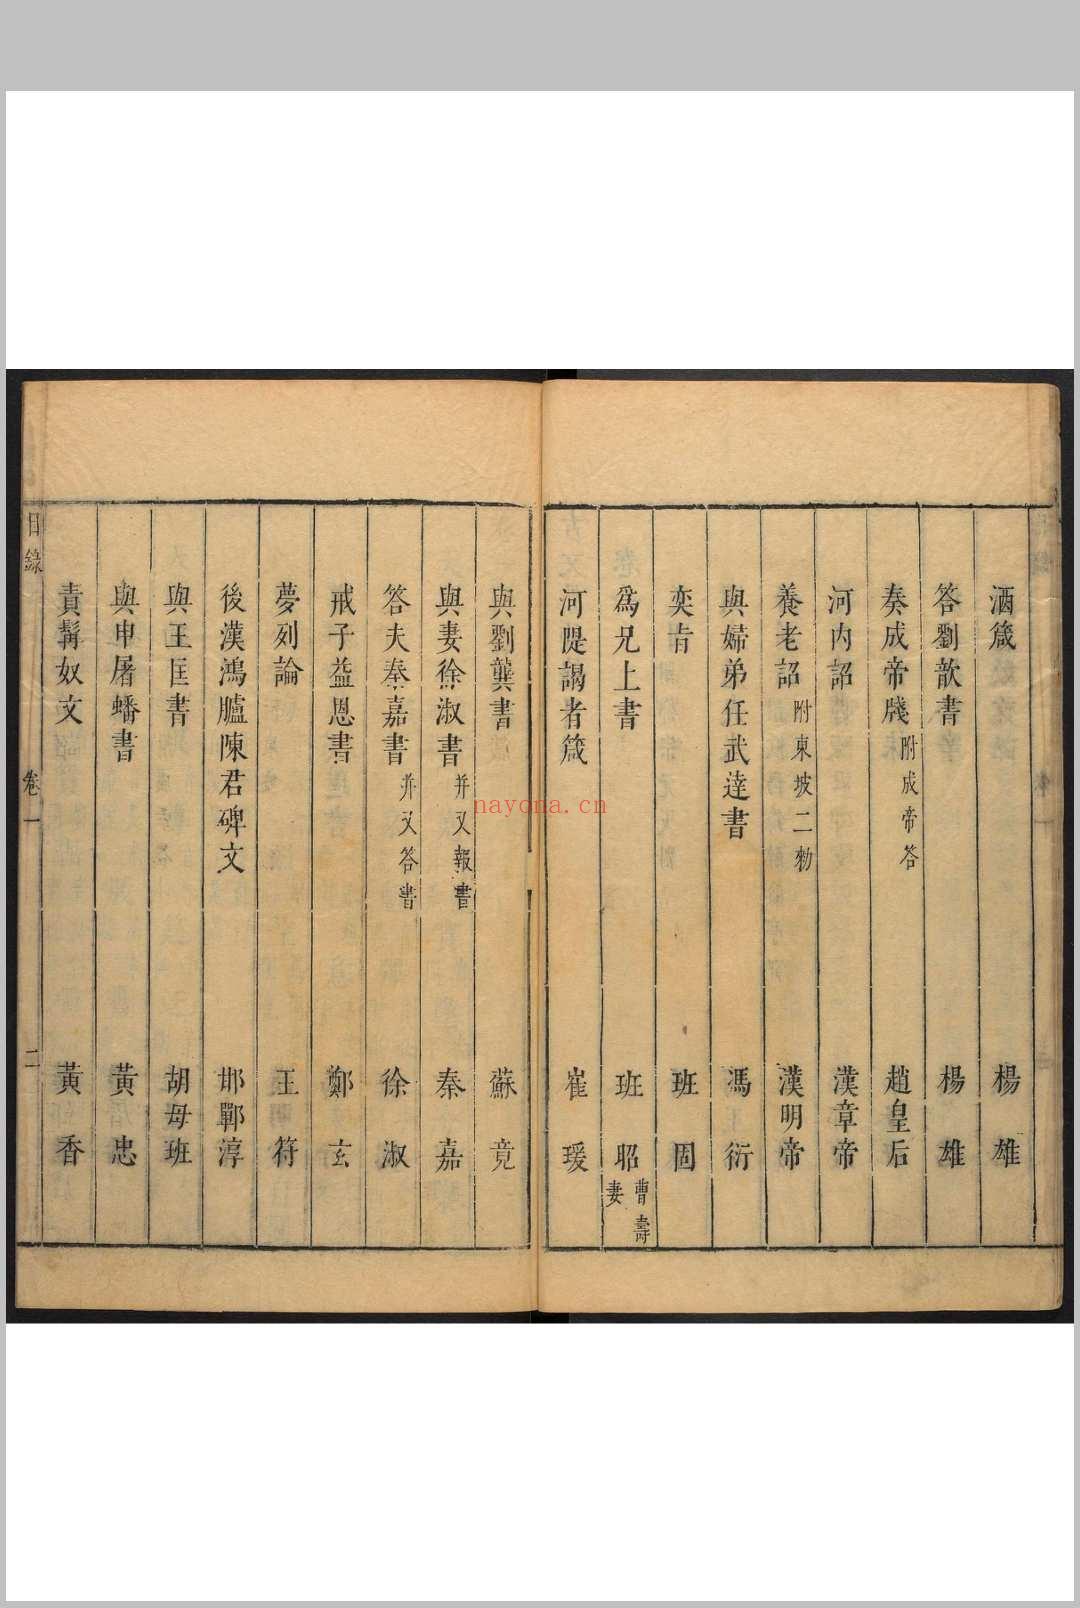 酒箴　楊雄
答劉歆書　楊雄
奏成帝牋附成帝答　趙皇后
河內詔　漢章帝
養老詔附東坡二勑　漢明帝
與婦弟任武達書　馮衍
奕旨　班固
爲兄上書　班昭曹壽妻
河隄謁者箴　崔瑗
與劉龔書　蘇竟
與妻徐淑書并又報書　秦嘉
答夫秦嘉書并又答書　徐淑
戒子益恩書　鄭玄
夢列論　王符
後漢鴻臚陳君碑文　邯鄲淳
與王匡書　胡母班
與申屠蟠書　黃忠
責髯奴文　黃香
目錄　卷一　二
nayona.cn